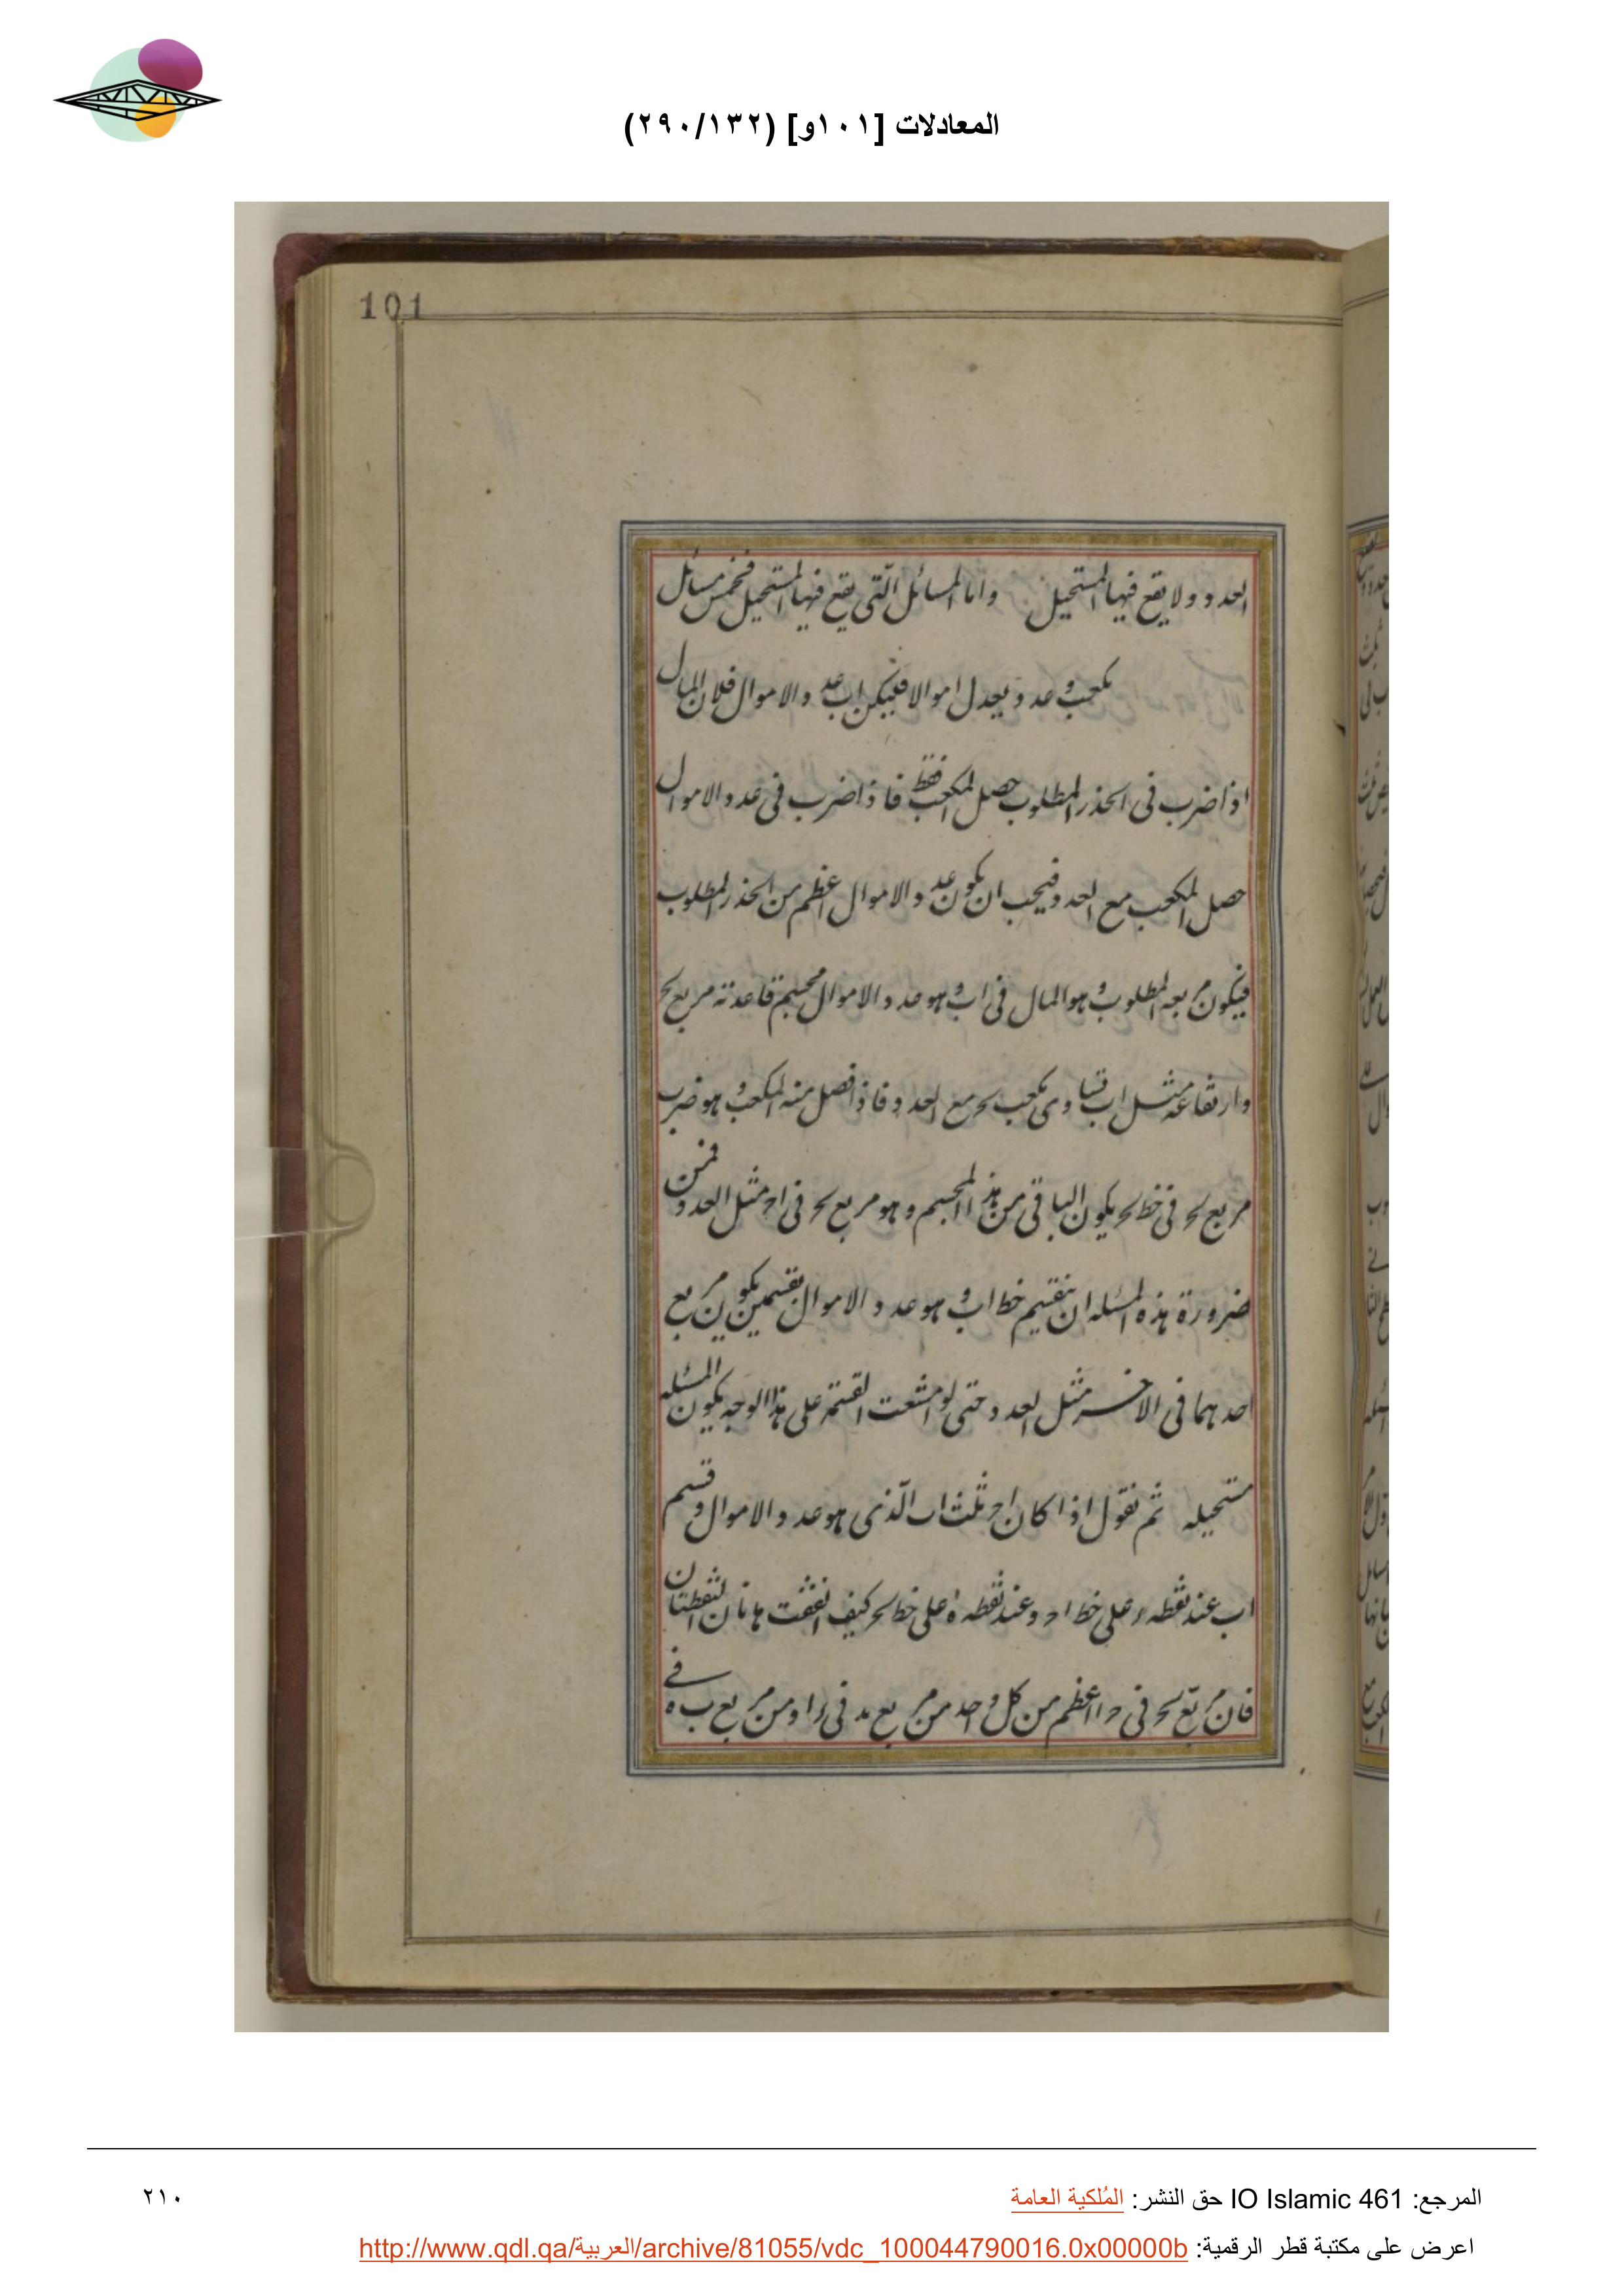 المعادلات [١٠١و] (٢٩٠/١٣٢)
101
العدد ولا يقع فيها المستحيل واما المسائل الّتى يقع فيها المستحيل فخمس مسائل
مكعب و عدد يعدل اموالا فليكن اب عدد الاموال فلان المال
اذا ضرب فى الجذر المطلوب حصل المكعب فقط فاذا ضرب فى عدد الاموال
حصل المكعب مع العدد فيجب ان يكون عدد الاموال اعظم من الجذر المطلوب
فيكون مربعه المطلوب و هو المال فى اب و هو عدد الاموال مجسم قاعدته مربع بح
وارتفاعه مثل اب تساوى مكعب بح مع العدد فاذا فصل منه المكعب و هو ضرب
مربع بح فى خط بح يكون الباقى من هذا المجسم و هو مربع بح فى اح مثل العدد فمن
ضرورة هذه المسئله ان ينقسم خط اب و هو عدد الاموال بقسمين يكون مربع
احدهما فى الاخر مثل العدد حتى لو امتنعت القسمة على هذا الوجه يكون المسئله
مستحيله ثم نقول اذا كان اح ثلث اب الّذى هو عدد الاموال و قسم
اب عند نقطه ء على خط اح و عند نقطه ه على خط بح كيف اتفقت هاتان النقطتان
فان مربّع بح فى حا اعظم من كل واحد من مربع بد فى ءا و من مربع ب ه فى
المرجع: IO Islamic 461 حق النشر: المُلكية العامة
٢١٠
اعرض على مكتبة قطر الرقمية: http://www.qdl.qa/العربية/archive/81055/vdc_100044790016.0x00000b